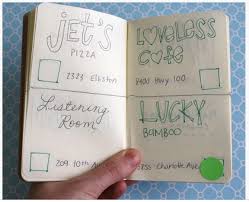 jet's
PIZZA
2323 Elliston
LOVELESS
Cafe
8400 Hwy. 100
Listening
Room
209 10th Ave
LUCKY
BAMBOO
Charlotte Ave